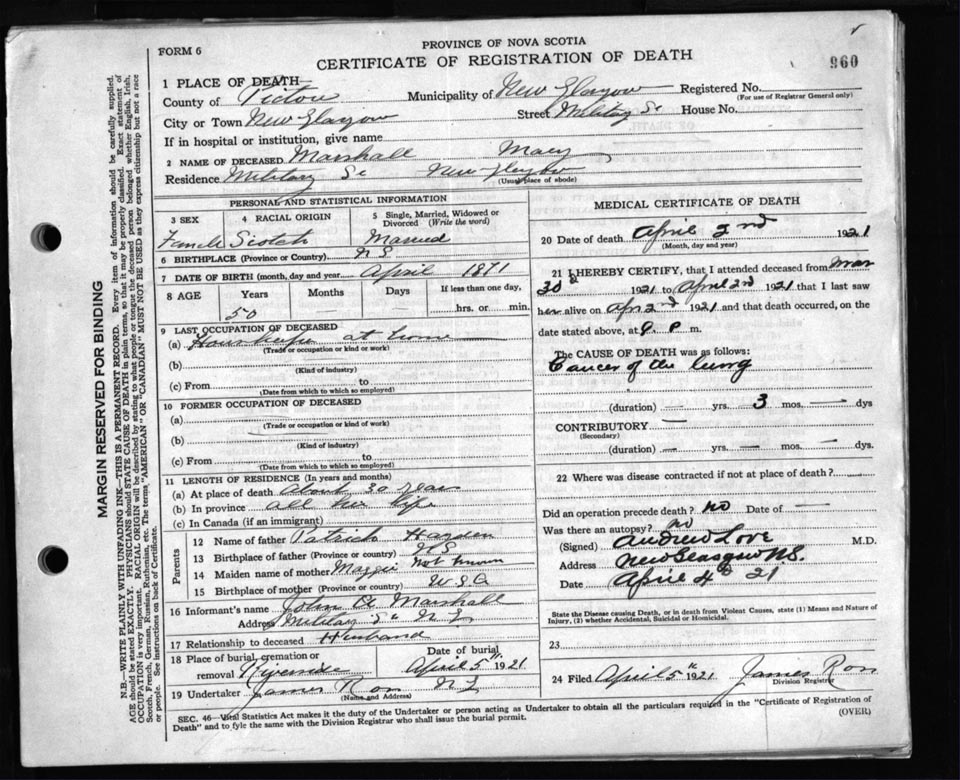 FORM 6
PROVINCE OF NOVA SCOTIA
CERTIFICATE OF REGISTRATION OF DEATH
960
1 PLACE OF DEATH
County of Pictou Municipality of New Glasgow Registered No.
(For use of Registrar General only)
City or Town New Glasgow Street Military St House No.
If in hospital or institution, give name
2 NAME OF DECEASED Marshall Mary
Residence Military St New Glasgow
(Usual place of abode)
PERSONAL AND STATISTICAL INFORMATION
3 SEX 4 RACIAL ORIGIN 5 Single, Married, Widowed or Divorced (Write the word)
Female Scotch Married
6 BIRTHPLACE (Province or Country) N S
7 DATE OF BIRTH (month, day and year) April 1871
8 AGE Years Months Days If less than one day,
50 — hrs. or min.
9 LAST OCCUPATION OF DECEASED
(a) at home
(Trade or occupation or kind or work)
(b)
(Kind of industry)
(c) From to
(Date from which to which so employed)
10 FORMER OCCUPATION OF DECEASED
(a)
(Trade or occupation or kind of work)
(b)
(Kind of industry)
(c) From to
(Date from which to which so employed)
11 LENGTH OF RESIDENCE (In years and months)
(a) At place of death about 30 years
(b) In province all her life
(c) In Canada (if an immigrant)
Parents
12 Name of father Patrick
13 Birthplace of father (Province or country) N S
14 Maiden name of mother Maggie not known
15 Birthplace of mother (Province or country)
16 Informant's name John Marshall
Address Military St
17 Relationship to deceased Husband
18 Place of burial, cremation or removal Date of burial
April 5th 1921
19 Undertaker James Ross
(Name and Address)
MEDICAL CERTIFICATE OF DEATH
20 Date of death April 2nd 1921
(Month, day and year)
21 I HEREBY CERTIFY, that I attended deceased from Mar
30th 1921 to April 2nd 1921 that I last saw
her alive on Apr 2nd 1921 and that death occurred, on the
date stated above, at 9 P m.
The CAUSE OF DEATH was as follows:
Cancer of the lung
(duration) — yrs. 3 mos. — dys
CONTRIBUTORY —
(Secondary)
(duration) — yrs. — mos. — dys.
22 Where was disease contracted if not at place of death?
Did an operation precede death? no Date of —
Was there an autopsy? no
(Signed) Andrew Love M.D.
Address New Glasgow N.S.
Date April 4th 21
State the Disease causing Death, or in death from Violent Causes, state (1) Means and Nature of Injury, (2) whether Accidental, Suicidal or Homicidal.
23
24 Filed April 5th 1921 James Ross
Division Registrar
SEC. 46—Vital Statistics Act makes it the duty of the Undertaker or person acting as Undertaker to obtain all the particulars required in the "Certificate of Registration of
Death" and to fyle the same with the Division Registrar who shall issue the burial permit. (OVER)
MARGIN RESERVED FOR BINDING
N.B.—WRITE PLAINLY WITH UNFADING INK—THIS IS A PERMANENT RECORD. Every item of information should be carefully supplied.
AGE should be stated EXACTLY. PHYSICIANS should STATE CAUSE OF DEATH in plain terms, so that it may be properly classified. Exact statement of
OCCUPATION is very important. RACIAL ORIGIN will be described by stating to what people or tongue the deceased person belonged whether English, Irish,
Scotch, French, German, Russian, Ruthenian, etc. The terms "AMERICAN" OR "CANADIAN" MUST NOT BE USED as they express citizenship but not a race
or people. See instructions on back of Certificate.